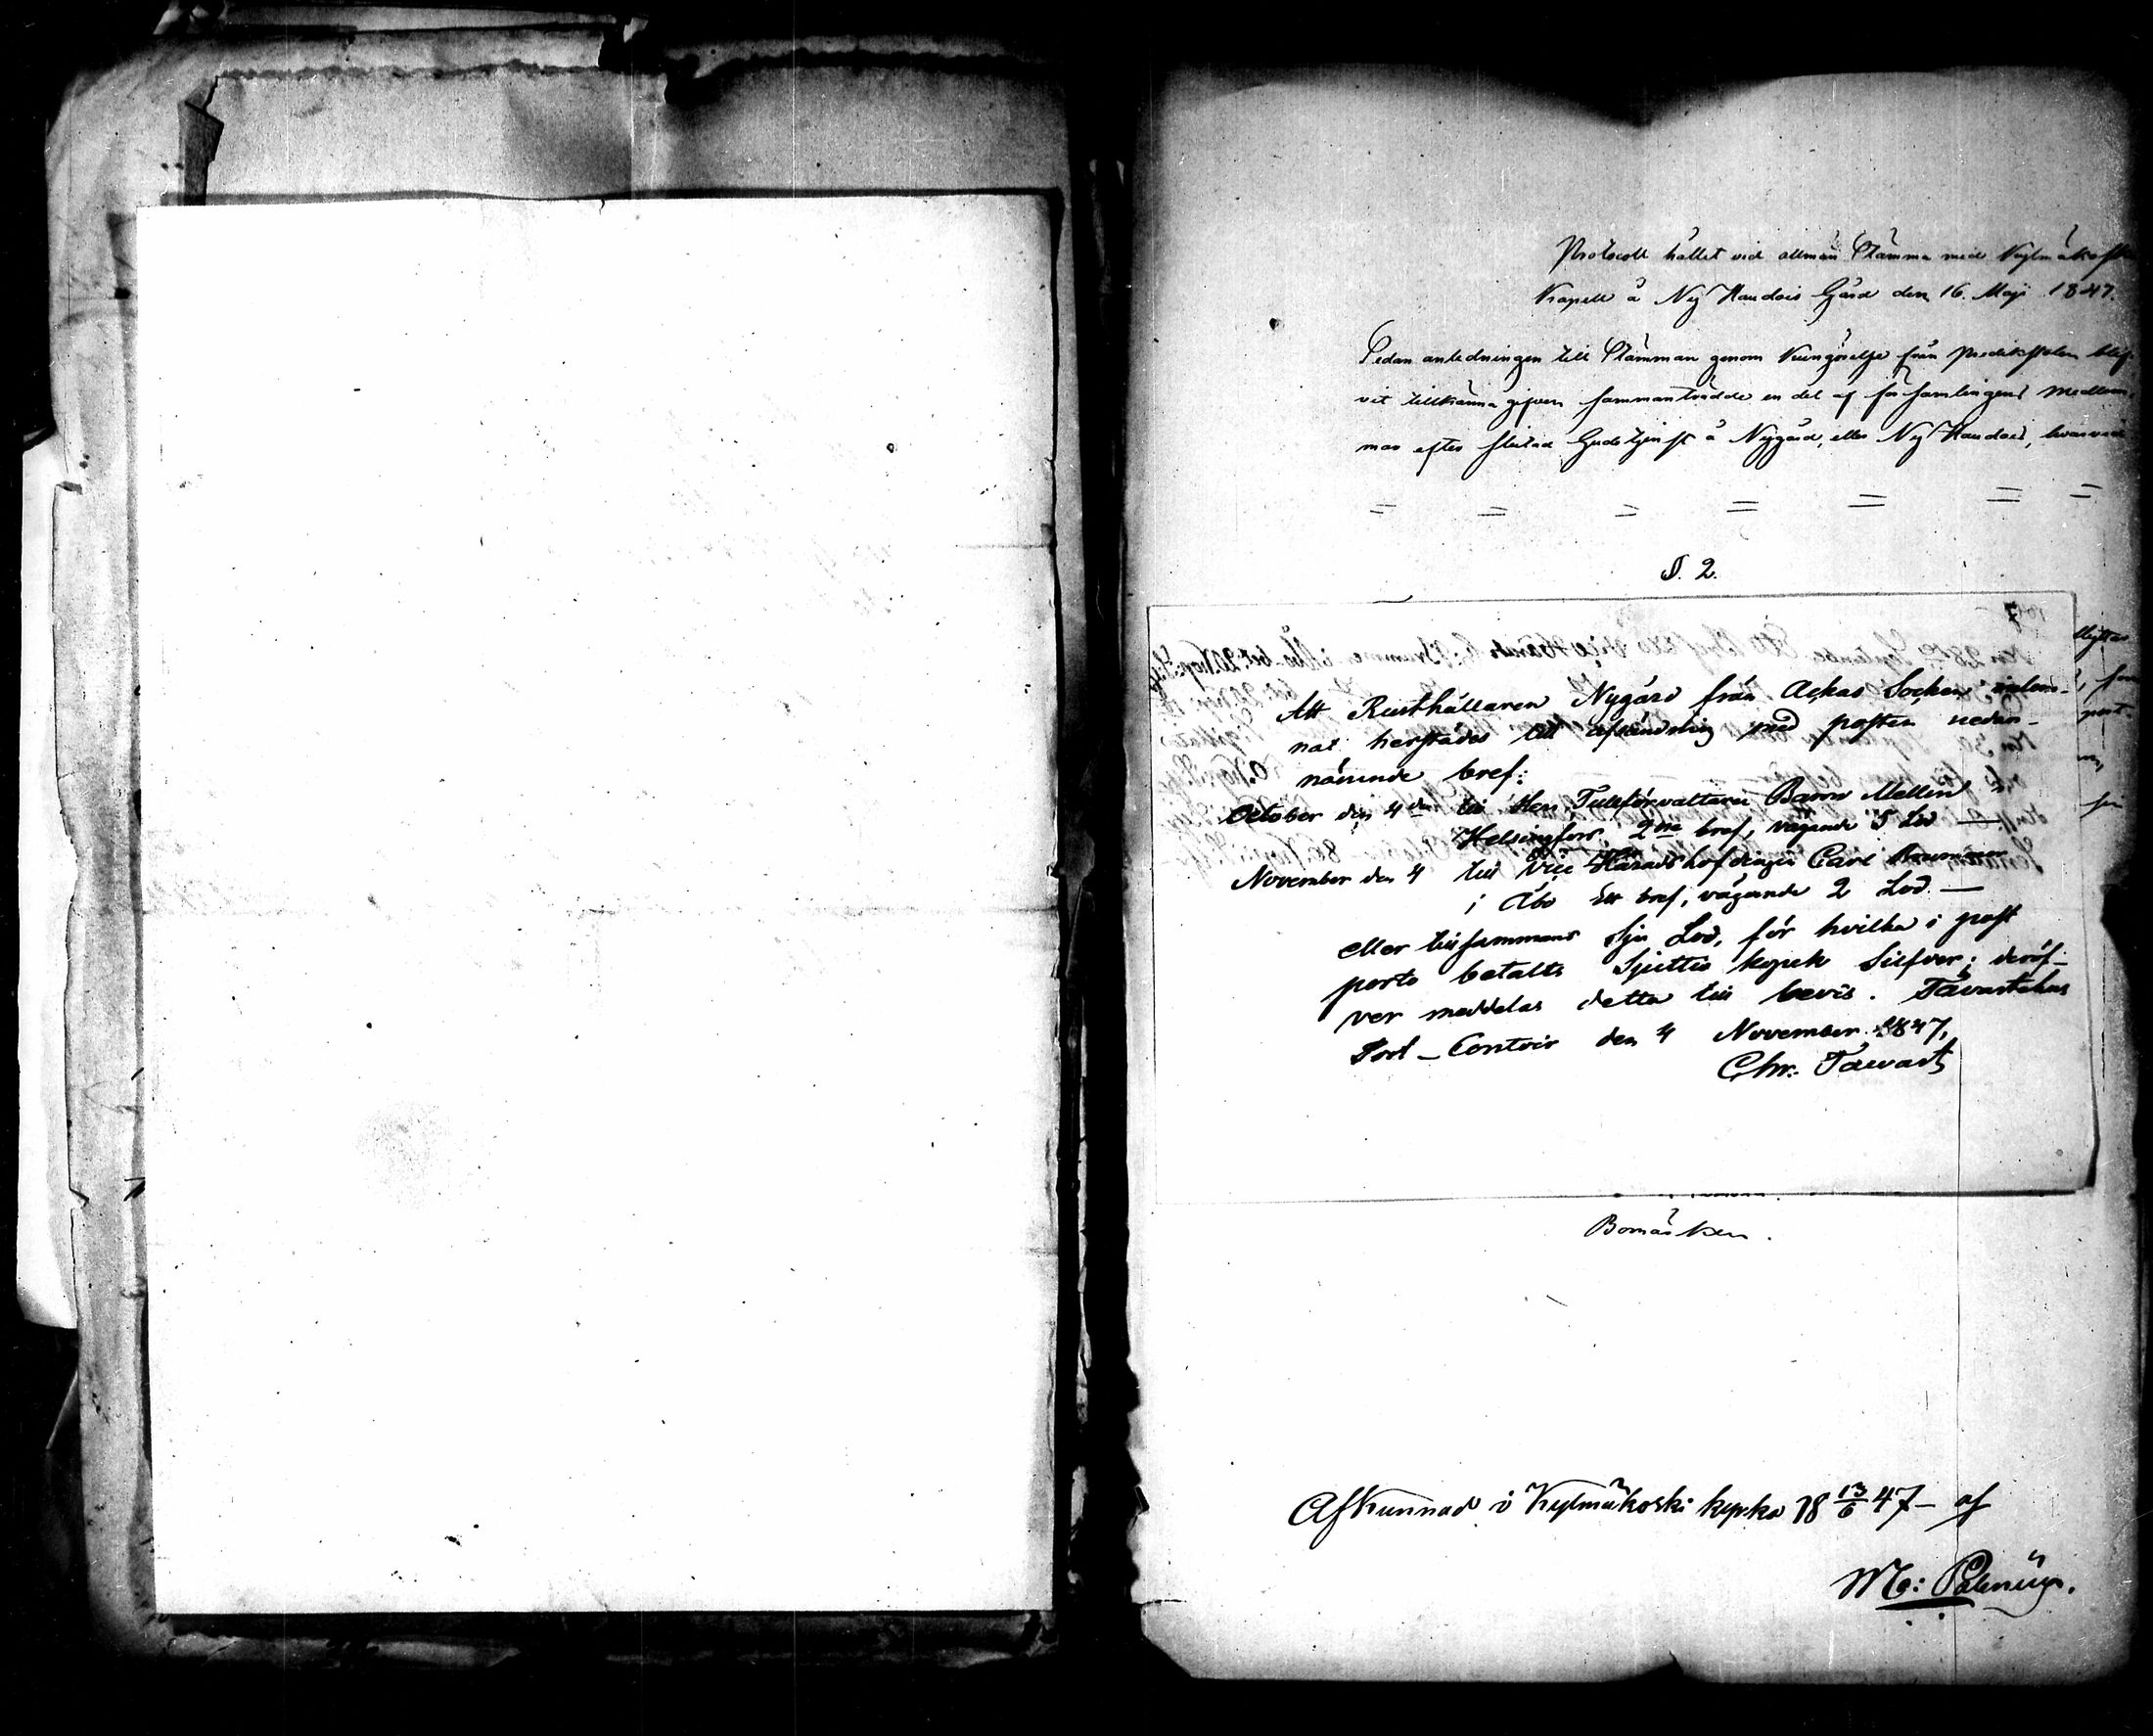 Protocoll hållet vid allmän Stämma med Kylmäkoski
Kapell å Ny Handois Gård den 16. Maji 1847.
Sedan anledningen till Stämman genom Kungörelse från Predikstolen blif-
vit tillkänna gifven sammanträdde en del af församlingens medlem-
mar efter slutad Gudstjenst å Nygård, eller Ny Handois, hvarvid
= = = = = = =
§. 2.
Att Rusthållaren Nygård från Ackas Socken inlem-
nat härstädes till afsändning med posten nedan-
nämnde bref:
October den 4 den till Herr Tullförvaltaren Baron Mellin i
Helsingfors, 2 ne bref, vägande 5 Lod —
November den 4 till Vice Häradshöfdingen Carl Brummer
i Åbo Ett bref, vägande 2 Lod. —
eller tillsammans Sju Lod, för hvilka i post
porto betalts Sjuttio kopek Silfver; deröf-
ver meddelas detta till bevis. Tavastehus
Post-Contoir den 4 November 1847,
Chr: Tawast
Bomärken.
Afkunnad i Kylmäkoski kyrka 18 13/6 47 - af